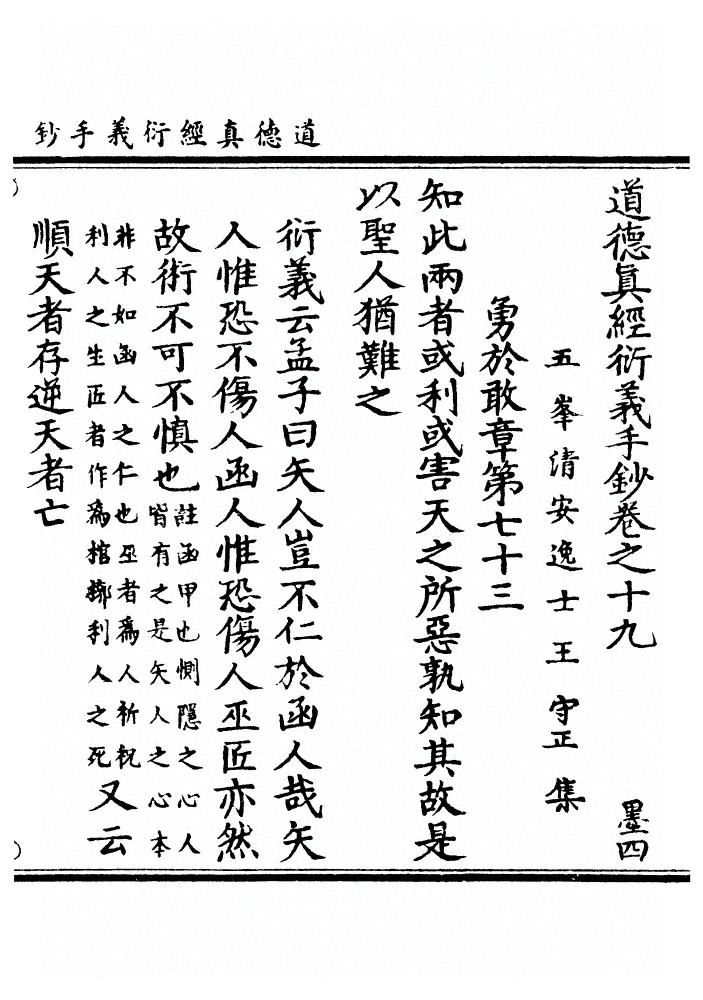 道德真經衍義手鈔
道德眞經衍義手鈔卷之十九 墨四
五峯清安逸士王守正集
勇於敢章第七十三
知此兩者或利或害天之所惡孰知其故是
以聖人猶難之
衍義云孟子曰矢人豈不仁於函人哉矢
人惟恐不傷人函人惟恐傷人巫匠亦然
故術不可不慎也註函甲也惻隱之心人
皆有之是矢人之心本
非不如函人之仁也巫者爲人祈祝
利人之生匠者作爲棺槨利人之死又云
順天者存逆天者亡